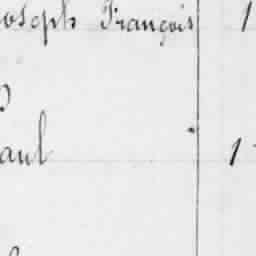 oseph François 1
aul 1